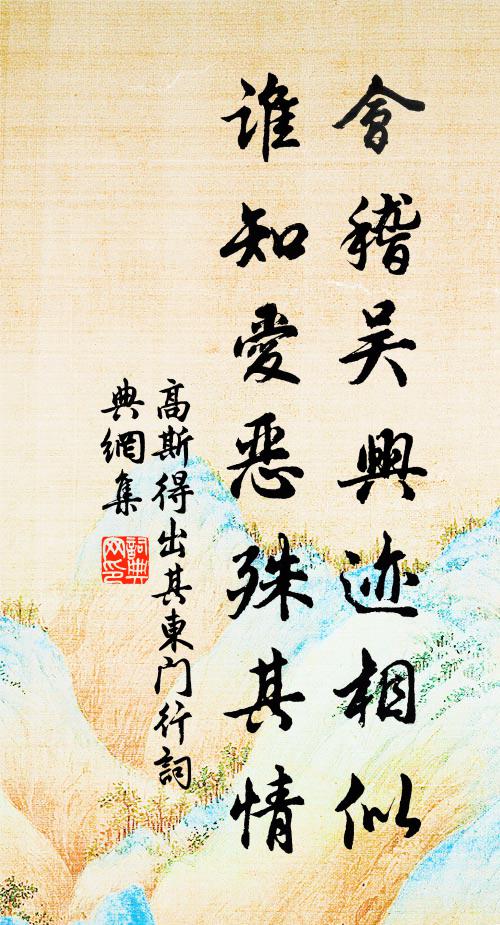 會稽吴興迹相似
誰知愛惡殊其情
高斯得出其東门行詞
典網集
詞典网印